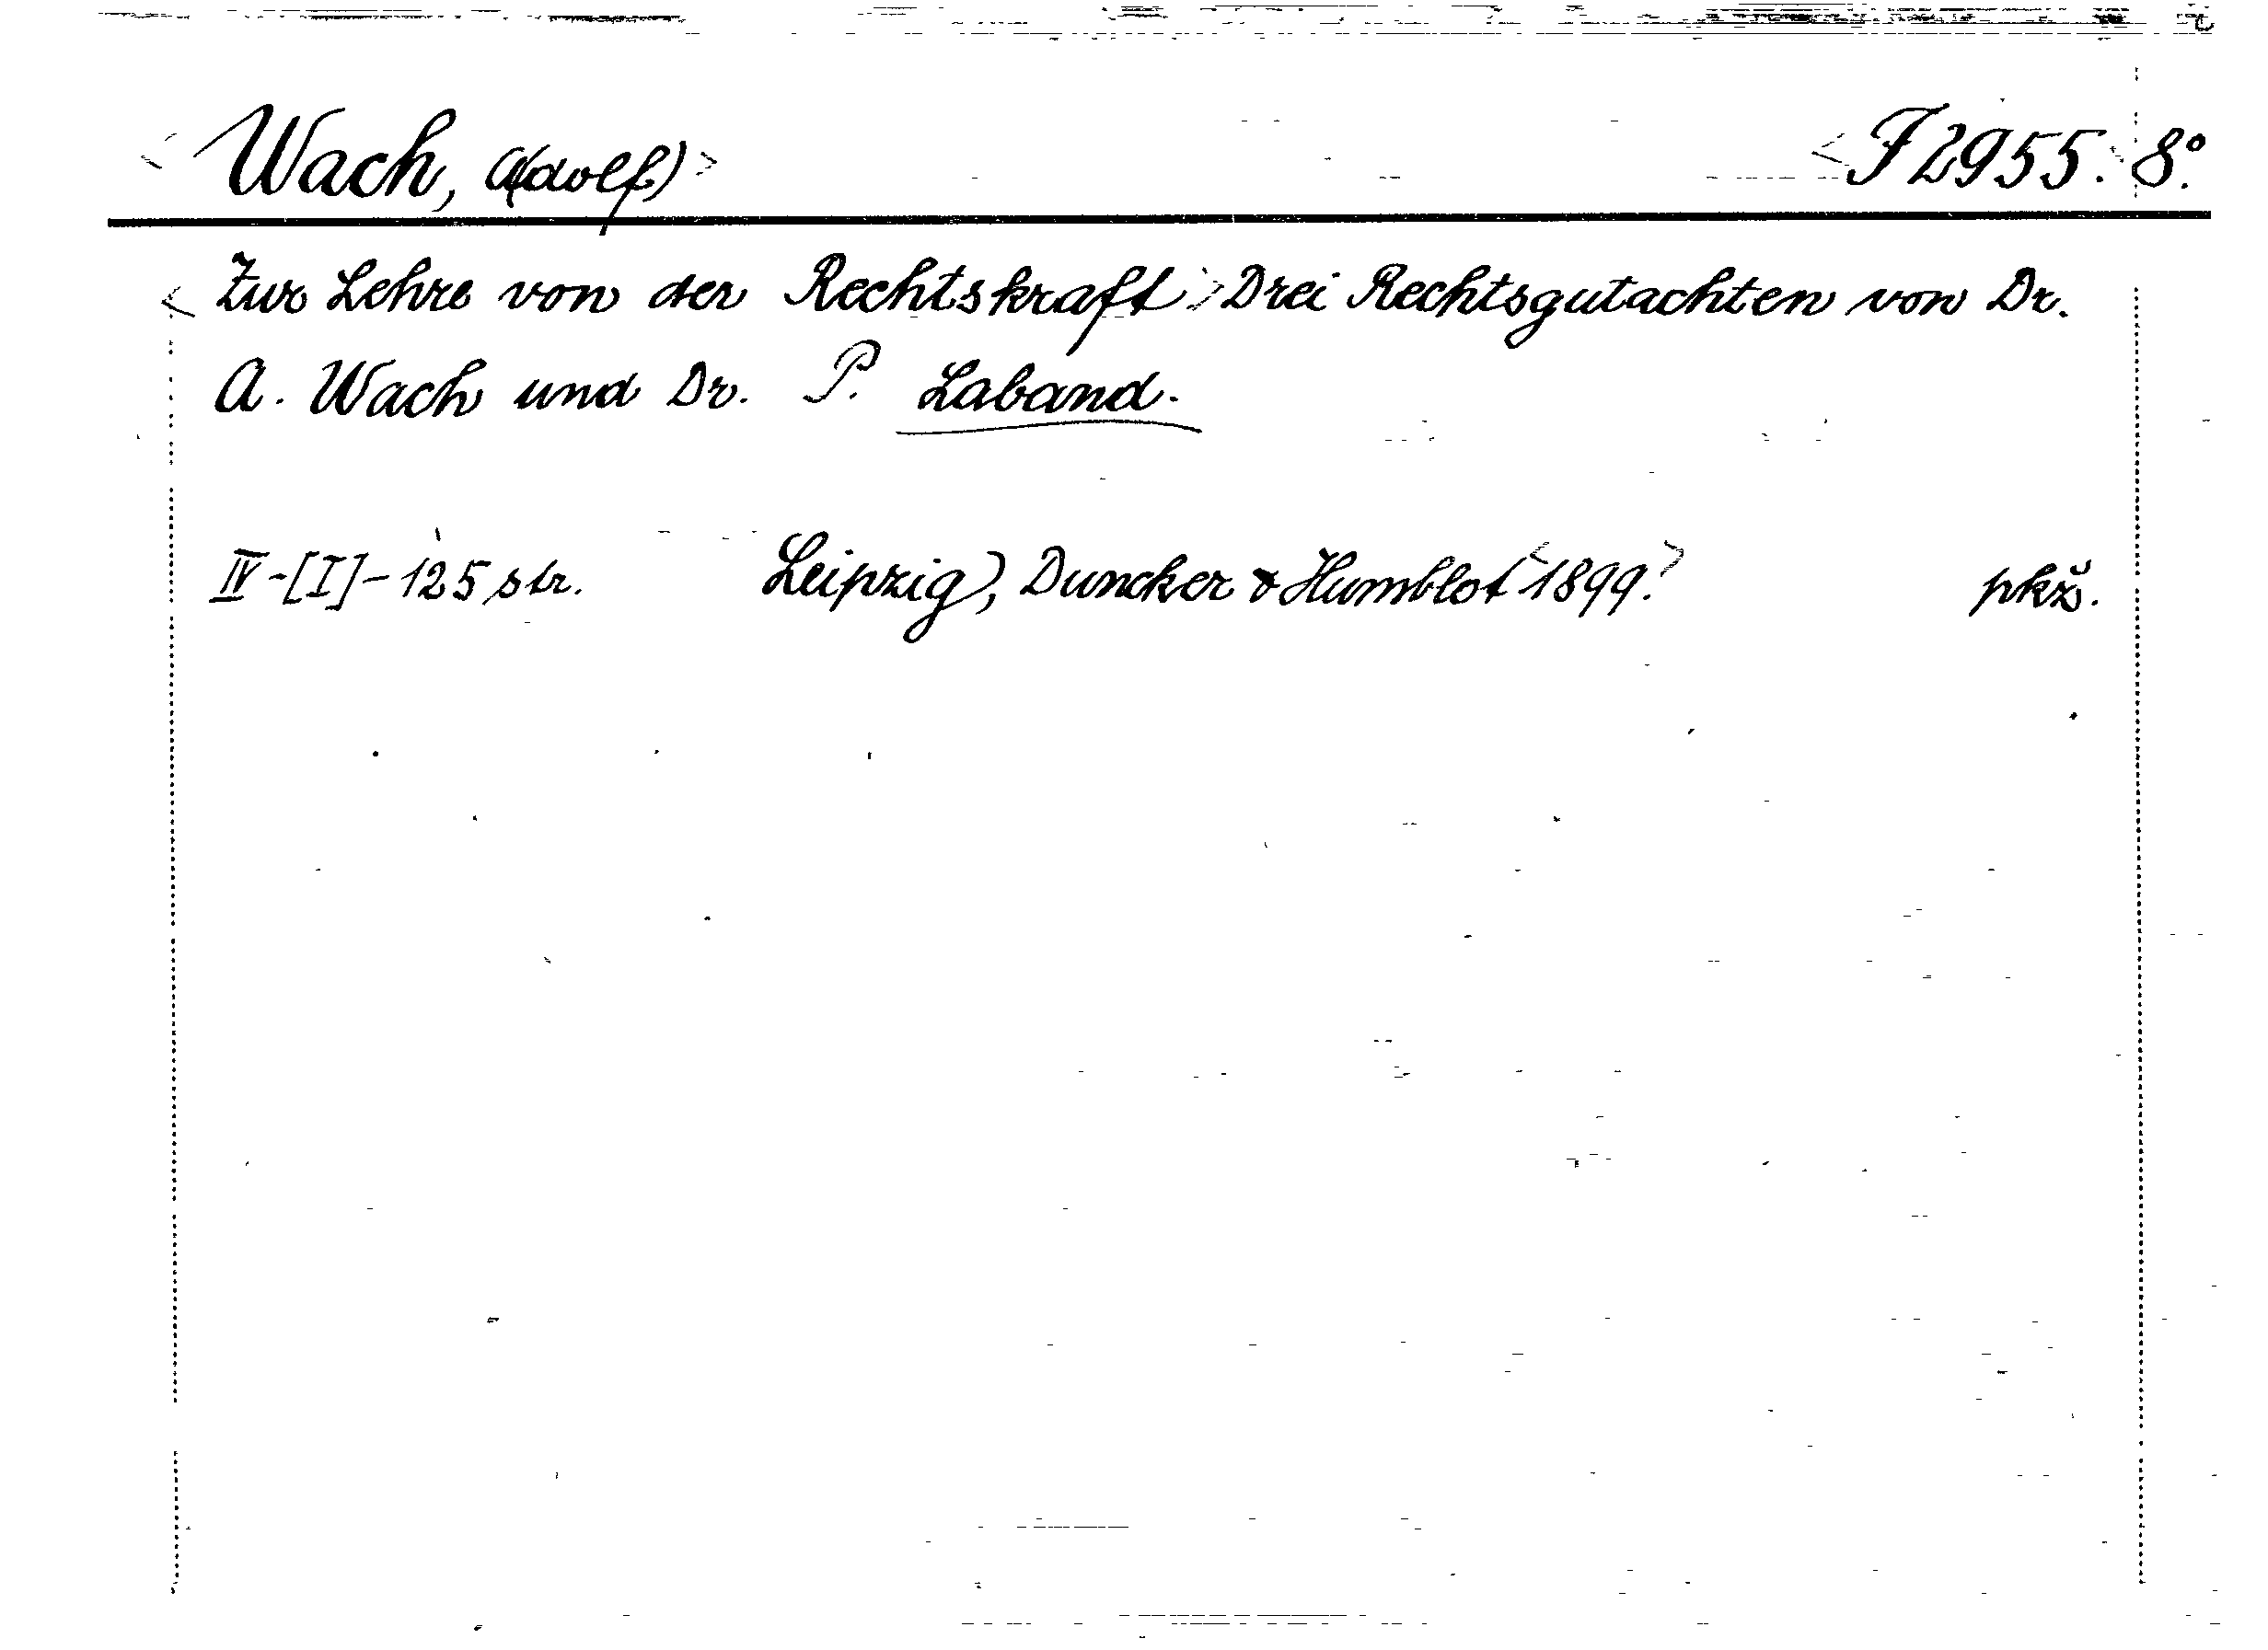 < Wach, A(dolf) > < J 2955. > 8°.
< Zur Lehre von der Rechtskraft > Drei Rechtsgutachten von Dr.
A. Wach und Dr. P. Laband.
IV-[I]-125 str. Leipzig), Duncker & Humblot < 1899. > pkž.